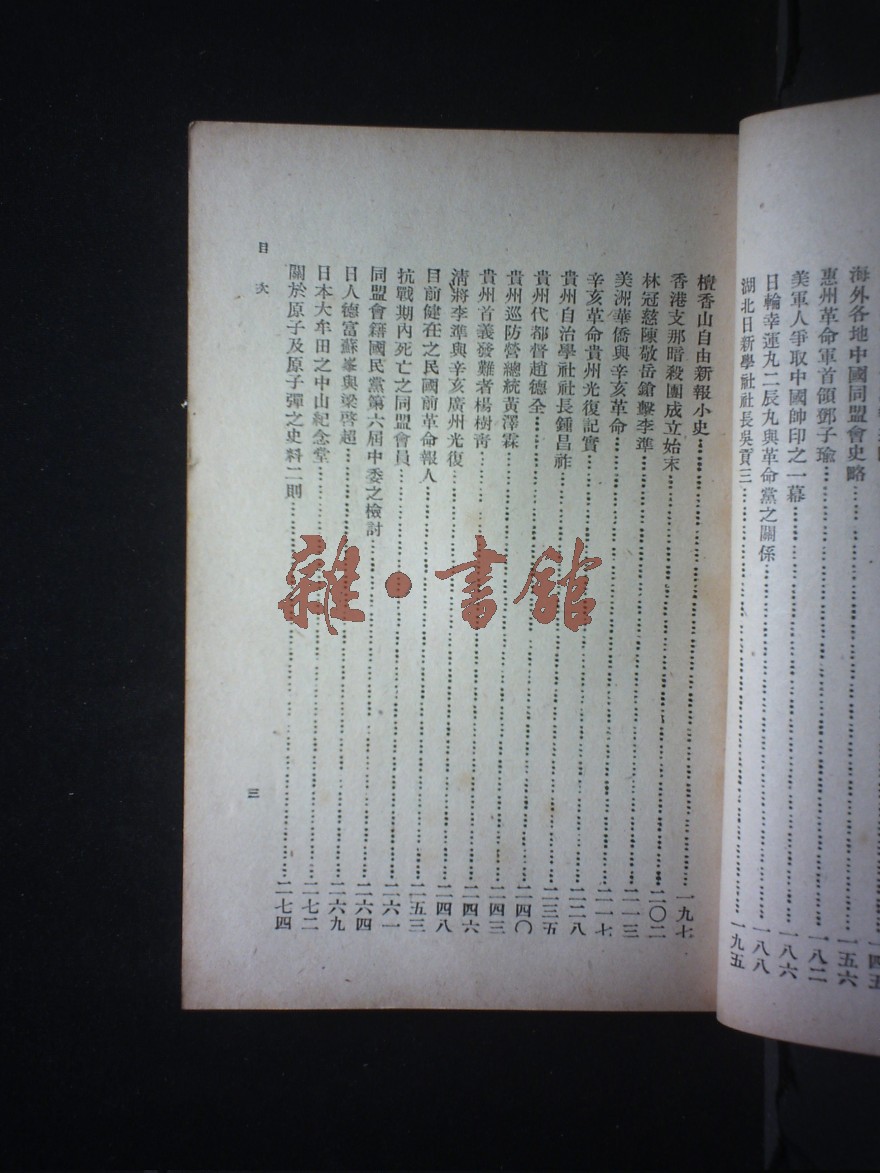 一四五
海外各地中國同盟會史略……一五六
惠州革命軍首領鄧子瑜……一八二
美軍人爭取中國帥印之一幕……一八六
日輪幸運丸二辰丸與革命黨之關係……一八八
湖北日新學社社長吳貢三……一九五
檀香山自由新報小史……一九七
香港支那暗殺團成立始末……二〇二
林冠慈陳敬岳鎗擊李準……二一三
美洲華僑與辛亥革命……二一七
辛亥革命貴州光復記實……二二八
貴州自治學社社長鍾昌祚……二三五
貴州代都督趙德全……二四〇
貴州巡防營總統黃澤霖……二四三
貴州首義發難者楊樹靑……二四六
淸將李準與辛亥廣州光復……二四八
目前健在之民國前革命報人……二五三
抗戰期內死亡之同盟會員……二六一
同盟會籍國民黨第六屆中委之檢討……二六四
日人德富蘇峯與梁啓超……二六九
日本大牟田之中山紀念堂……二七二
關於原子及原子彈之史料二則……二七四
目次
三
雜·書館